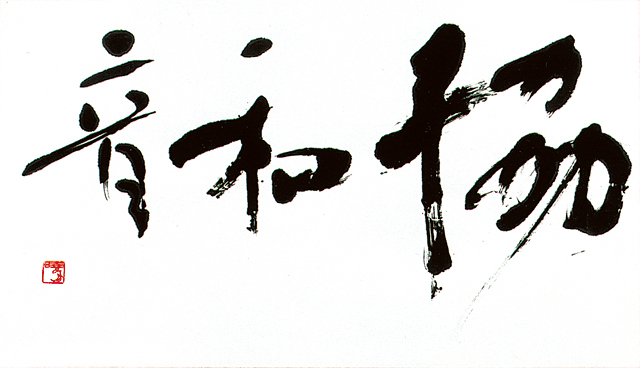 協和音